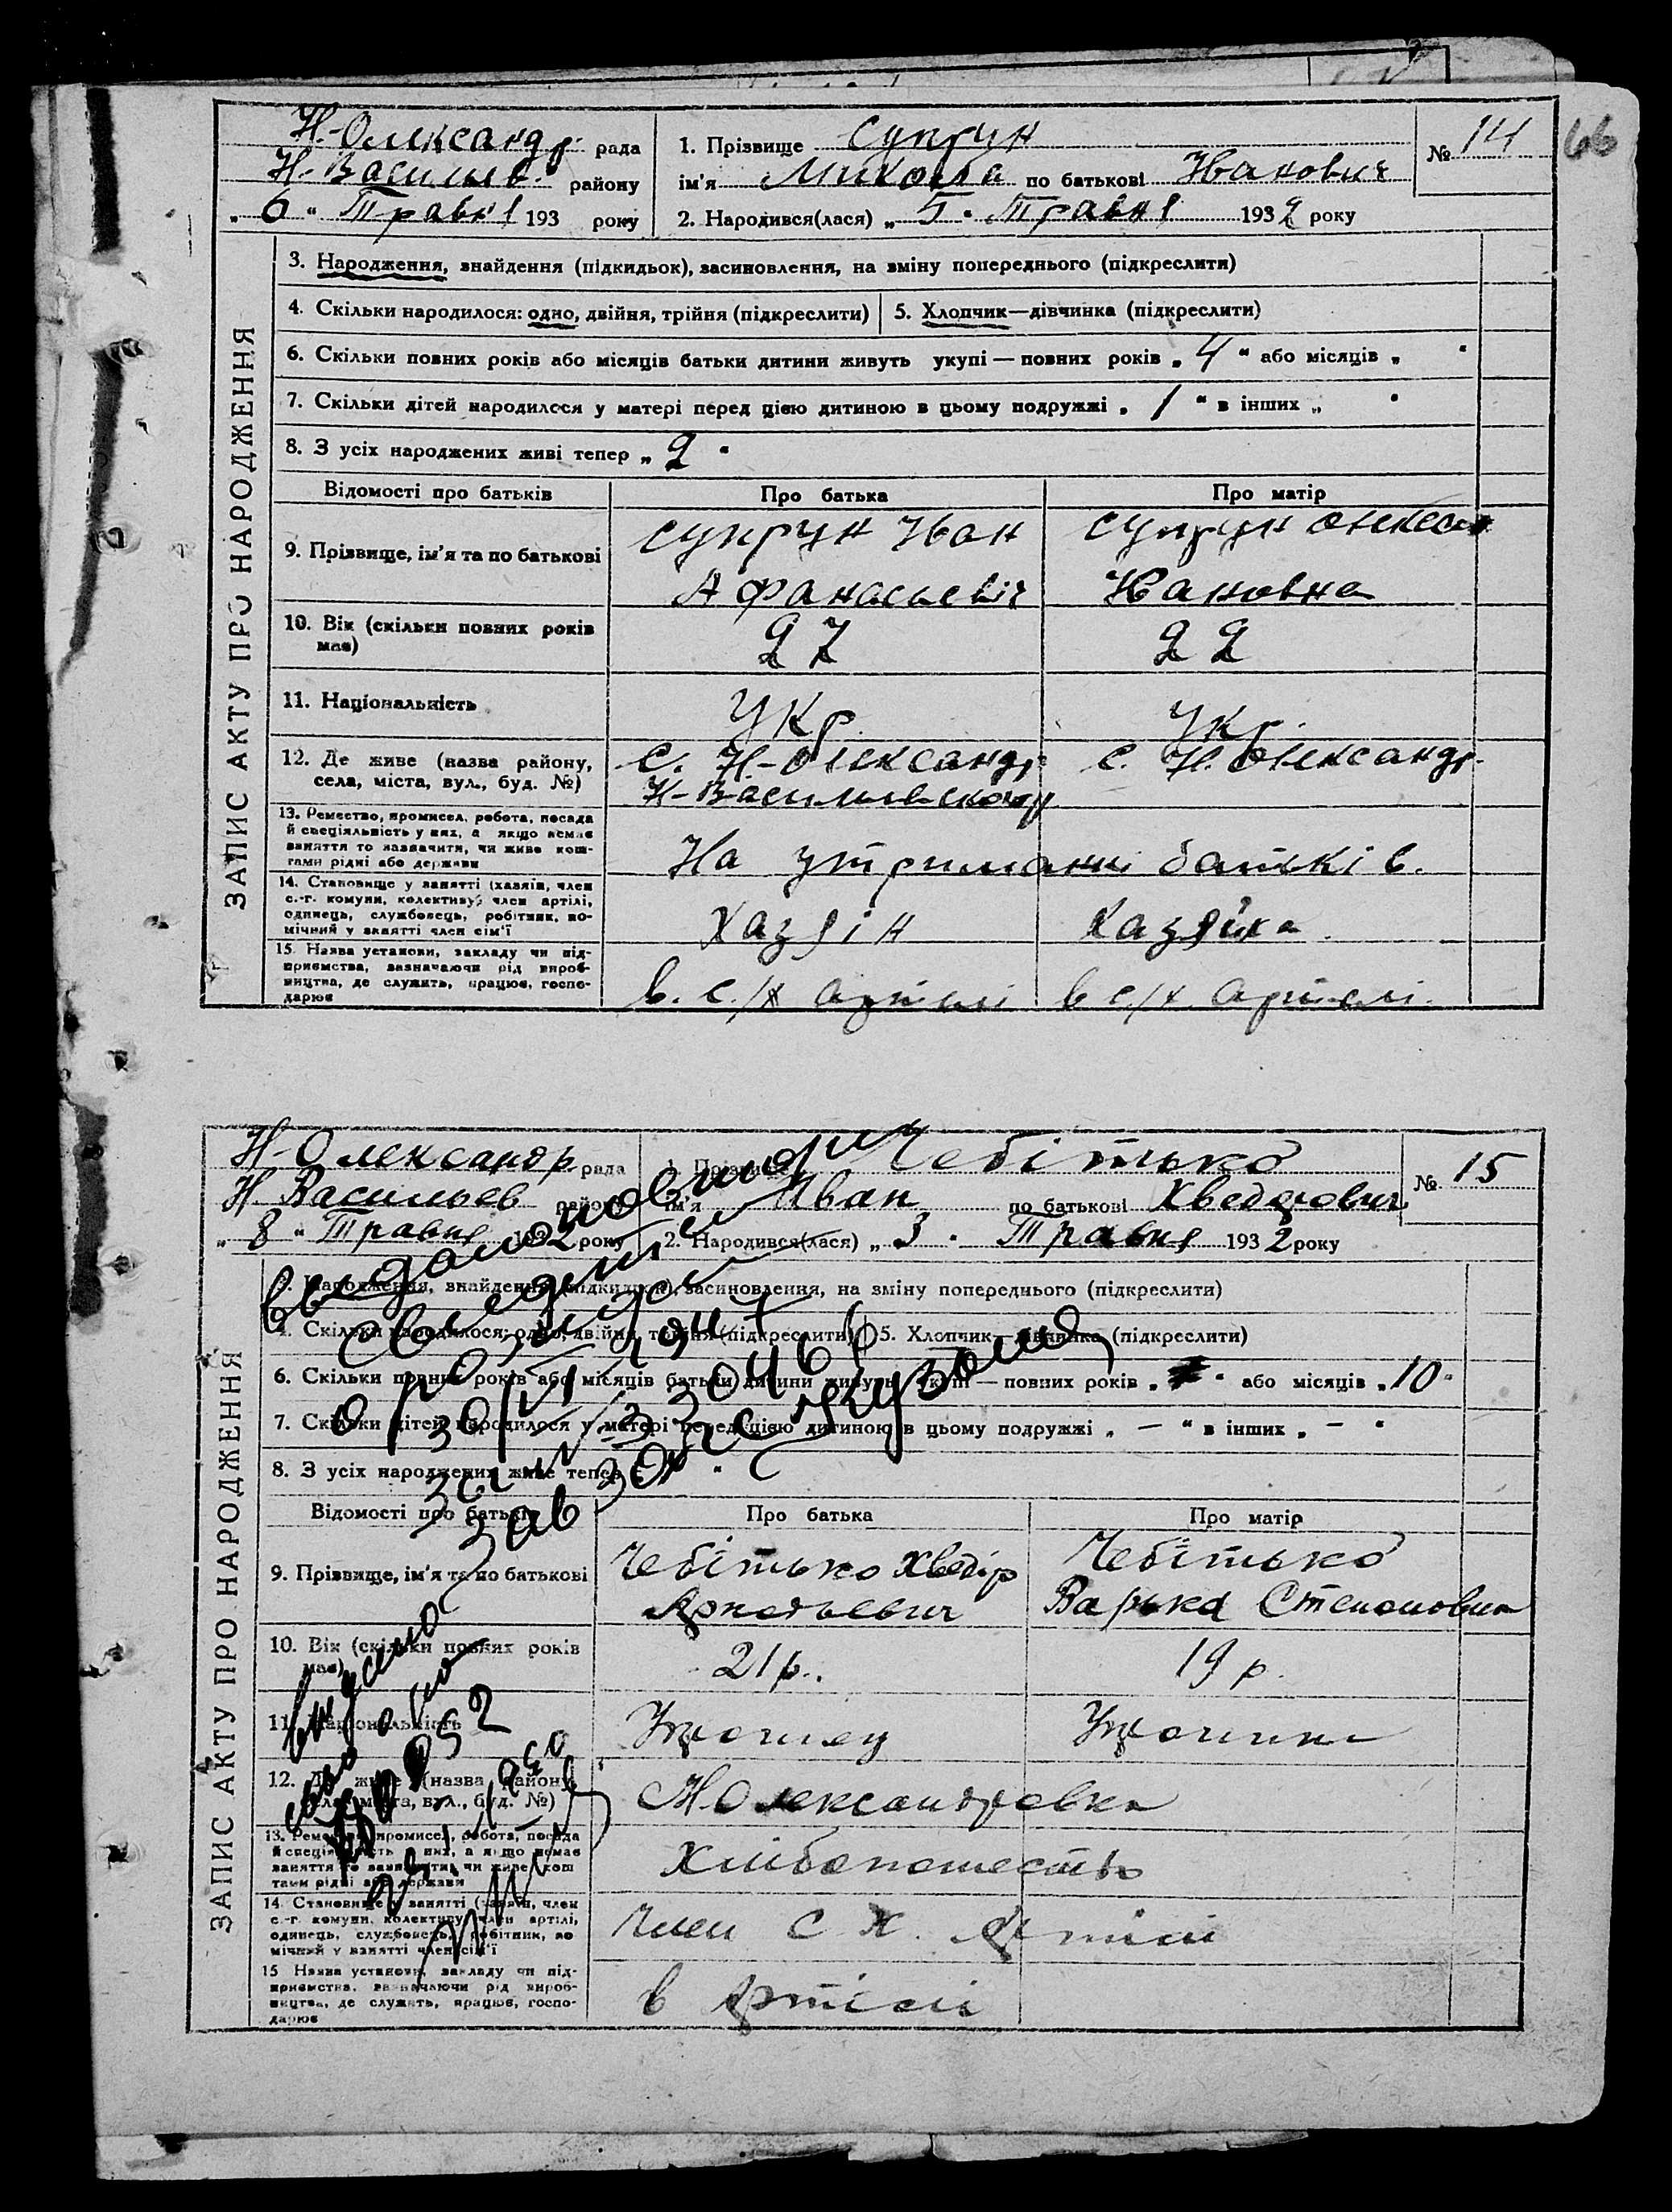 66
Н.-Олександр. рада
Н-Васильев. району
„ 6 “ Травня 193 року
1. Прізвище Супрун
№ 14
ім'я Микола по батькові Іванович
2. Народився(лася) „ 5 “ Травня 1932 року
ЗАПИС АКТУ ПРО НАРОДЖЕННЯ
3. Народження, знайдення (підкидьок), засиновлення, на зміну попереднього (підкреслити)
4. Скільки народилося: одно, двійня, трійня (підкреслити)
5. Хлопчик—дівчинка (підкреслити)
6. Скільки повних років або місяців батьки дитини живуть укупі — повних років „ 4 “ або місяців „ “
7. Скільки дітей народилося у матері перед цією дитиною в цьому подружжі „ 1 “ в інших „ “
8. З усіх народжених живі тепер „ 2 “
Відомості про батьків
Про батька
Про матір
9. Прізвище, ім'я та по батькові
Супрун Іван
Афанасьевіч
Супрун
Івановна
10. Вік (скільки повних років
має)
27
22
11. Національність
Укр.
Укр.
12. Де живе (назва району,
села, міста, вул., буд. №)
с. Н-Олександр.
Н-Васильевского
с. Н. Олександр.
13. Ремество, промисел, робота, посада
й спеціяльність у них, а якщо немає
заняття то зазначити, чи живе кош-
тами рідні або держави
На утриманні батьків.
14. Становище у занятті (хазяїн, член
с.-г. комуни, колективу, член артілі,
одинець, службовець, робітник, по-
мічний у занятті член сім'ї
Хазяін
Хазяйка
15. Назва установи, закладу чи під-
приємства, зазначаючи рід вироб-
ництва, де служить, працює, госпо-
дарює
в. с./х артілі
в с/х. артелі.
Н-Олександр рада
Н Васильев району
„ 8 “ Травня 1932 року
1. Прізвище Чебітько
№ 15
ім'я Иван по батькові Хведорович
2. Народився(лася) „ 3 “ Травня 1932 року
ЗАПИС АКТУ ПРО НАРОДЖЕННЯ
3. Народження, знайдення (підкидьок), засиновлення, на зміну попереднього (підкреслити)
4. Скільки народилося: одно, двійня, трійня (підкреслити)
5. Хлопчик—дівчинка (підкреслити)
6. Скільки повних років або місяців батьки дитини живуть укупі — повних років „ “ або місяців „ 10 “
7. Скільки дітей народилося у матері перед цією дитиною в цьому подружжі „ — “ в інших „ — “
8. З усіх народжених живе тепер
Выдано повторн
свидет
о рожд
30/VI 1947
зав загс
Відомості про батьків
Про батька
Про матір
9. Прізвище, ім'я та по батькові
Чебітько Хведір
Чебітько
Варька Степановна
10. Вік (скільки повних років
має)
21 р.
19 р.
11. Національність
12. Де живе (назва району,
села, міста, вул., буд. №)
Н.Олександровка
13. Ремество, промисел, робота, посада
й спеціяльність у них, а якщо немає
заняття то зазначити, чи живе кош
тами рідні або держави
Хлібопашество
14. Становище у занятті (хазяїн, член
с.-г. комуни, колективу, член артілі,
одинець, службовець, робітник, по
мічний у занятті член сім'ї
Член с х. Артілі
15 Назва установи, закладу чи під-
приємства, зазначаючи рід вироб-
ництва, де служить, працює, госпо-
дарює
в Артілі